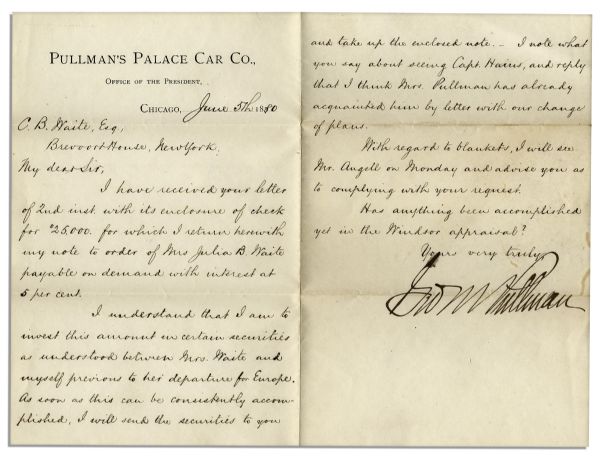 PULLMAN'S PALACE CAR CO.,
OFFICE OF THE PRESIDENT,
CHICAGO, June 5th 1880
C. B. Waite, Esq,
Brevoort House, New York.
My dear Sir,
I have received your letter
of 2nd inst. with its enclosure of check
for $25,000. for which I return herewith
my note to order of Mrs Julia B. Waite
payable on demand with interest at
5 per cent.
I understand that I am to
invest this amount in certain securities
as understood between Mrs. Waite and
myself previous to her departure for Europe.
As soon as this can be consistently accom-
plished, I will send the securities to you
and take up the enclosed note. – I note what
you say about seeing Capt. Hains, and reply
that I think Mrs. Pullman has already
acquainted him by letter with our change
of plans.
With regard to blankets, I will see
Mr. Angell on Monday and advise you as
to complying with your request.
Has anything been accomplished
yet in the Windsor appraisal?
Yours very truly,
Geo M Pullman